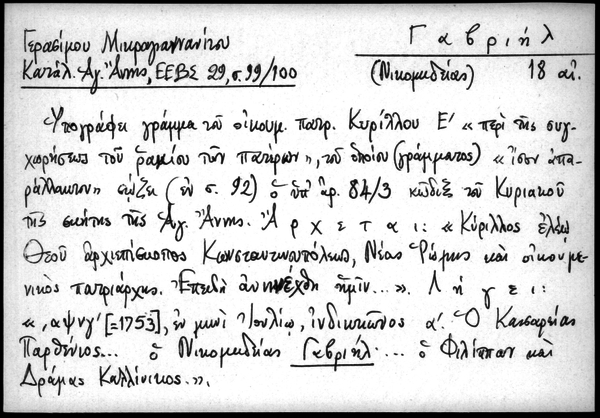 Γερασίμου Μικραγιαννανίτου
Γαβριήλ
Κατάλ. Ἁγ. Ἄννης, ΕΕΒΣ 29, σ. 99/100
(Νικομηδείας) 18 αἰ.
Ὑπογράφει γράμμα τοῦ οἰκουμ. πατρ. Κυρίλλου Ε' «περὶ τῆς συγ-
χωρήσεως τοῦ τῶν πατέρων», τοῦ ὁποίου (γράμματος) «ἴσον ἀπα-
ράλλακτον» σῴζει (ἐν σ. 92) ὁ ὑπ' ἀρ. 84/3 κῶδιξ τοῦ Κυριακοῦ
τῆς σκήτης τῆς Ἁγ. Ἄννης. Ἄρχεται: «Κύριλλος ἐλέῳ
Θεοῦ ἀρχιεπίσκοπος Κωνσταντινουπόλεως, Νέας Ῥώμης καὶ οἰκουμε-
νικὸς πατριάρχης. Ἐπειδὴ ἀνηνέχθη ἡμῖν...». Λήγει:
«͵αψνγ' [=1753], ἐν μηνὶ Ἰουλίῳ, ἰνδικτιῶνος α'. Ὁ Καισαρείας
Παρθένιος... ὁ Νικομηδείας Γαβριήλ... ὁ Φιλίππων καὶ
Δράμας Καλλίνικος.».